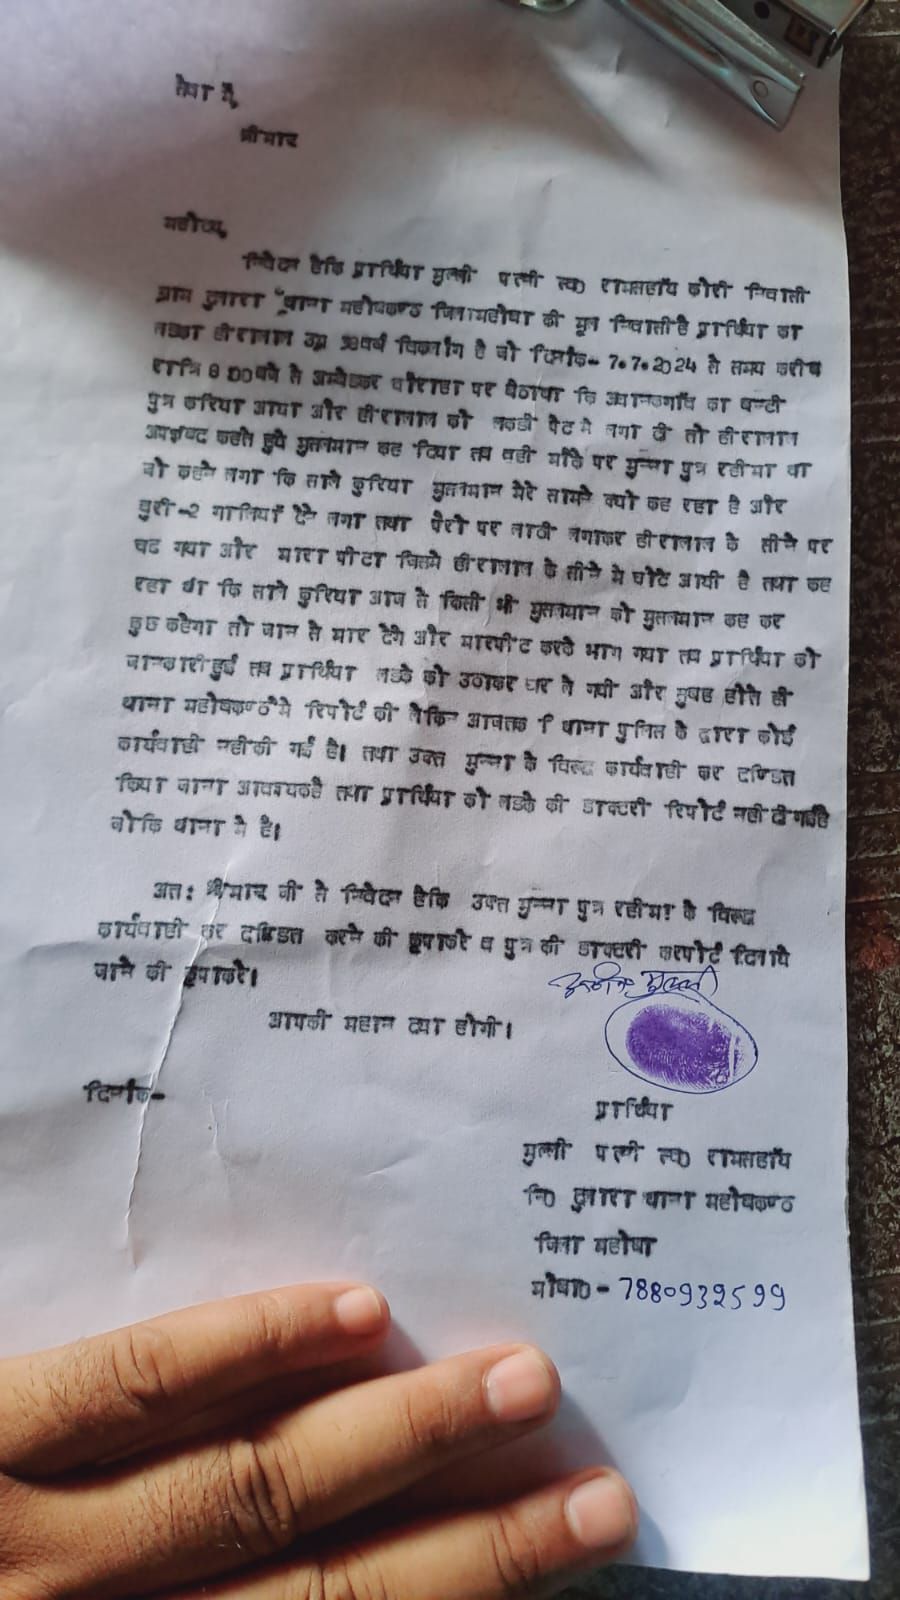 सेवा में,
श्रीमान
महोदय,
निवेदन हैकि प्रार्थिया मुल्ली पत्नी स्व0 रामसहॉय कोरी निवासी
ग्राम थाना महोबकण्ठ जिलामहोबा की मूल निवासी है प्रार्थिया का
लडका हीरालाल उम्र वर्ष विकलॉग है जो दिनॉक- 7.7.2024 से समय करीब
रात्रि 8.00बजे से अम्बेडकर चौराहा पर बैठाथा कि गॉव का
पुत्र करिया आया और हीरालाल को लकडी पेट मे लगा दी तो हीरालाल
अपशब्द कहते हुये मुसलमान कह दिया तब वही मौके पर मुन्ना पुत्र रहीमा था
जो कहने लगा कि साले कुरिया मुसलमान मेरे सामने क्यो कह रहा है और
बुरी-2 गालियॉ देने लगा तथा पैरो पर लाठी लगाकर हीरालाल के सीने पर
चढ गया और मारा पीटा जिसमे हीरालाल के सीने मे चोटे आयी है तथा कह
रहा था कि साले कुरिया आज से किसी भी मुसलमान को मुसलमान कह कर
कुछ कहेगा तो जान से मार देंगे और मारपीट करके भाग गया तब प्रार्थिया को
जानकारी हुई तब प्रार्थिया लडके को उठाकर घर ले गयी और सुबह होते ही
थाना महोबकण्ठ मे रिपोर्ट की लेकिन आजतक थाना पुलिस के द्वारा कोई
कार्यवाही नहीकी गई है। तथा उक्त मुन्ना के विरुद्ध कार्यवाही कर दण्डित
किया जाना आवश्यकहै तथा प्रार्थिया को लडके की डाक्टरी रिपोर्ट नही दी गईहै
जोकि थाना मे है।
अत: श्रीमान जी से निवेदन हैकि उक्त मुन्ना पुत्र रहीमा के विरुद्ध
कार्यवाही कर दण्डित करने की कृपाकरे व पुत्र की डाक्टरी दिलाये
जाने की कृपाकरे।
आपकी महान दया होगी।
मुल्ली
दिनॉक-
प्रार्थिया
मुल्ली पत्नी स्व0 रामसहॉय
नि0 थाना महोबकण्ठ
जिला महोबा
मोबा0- 7880932599